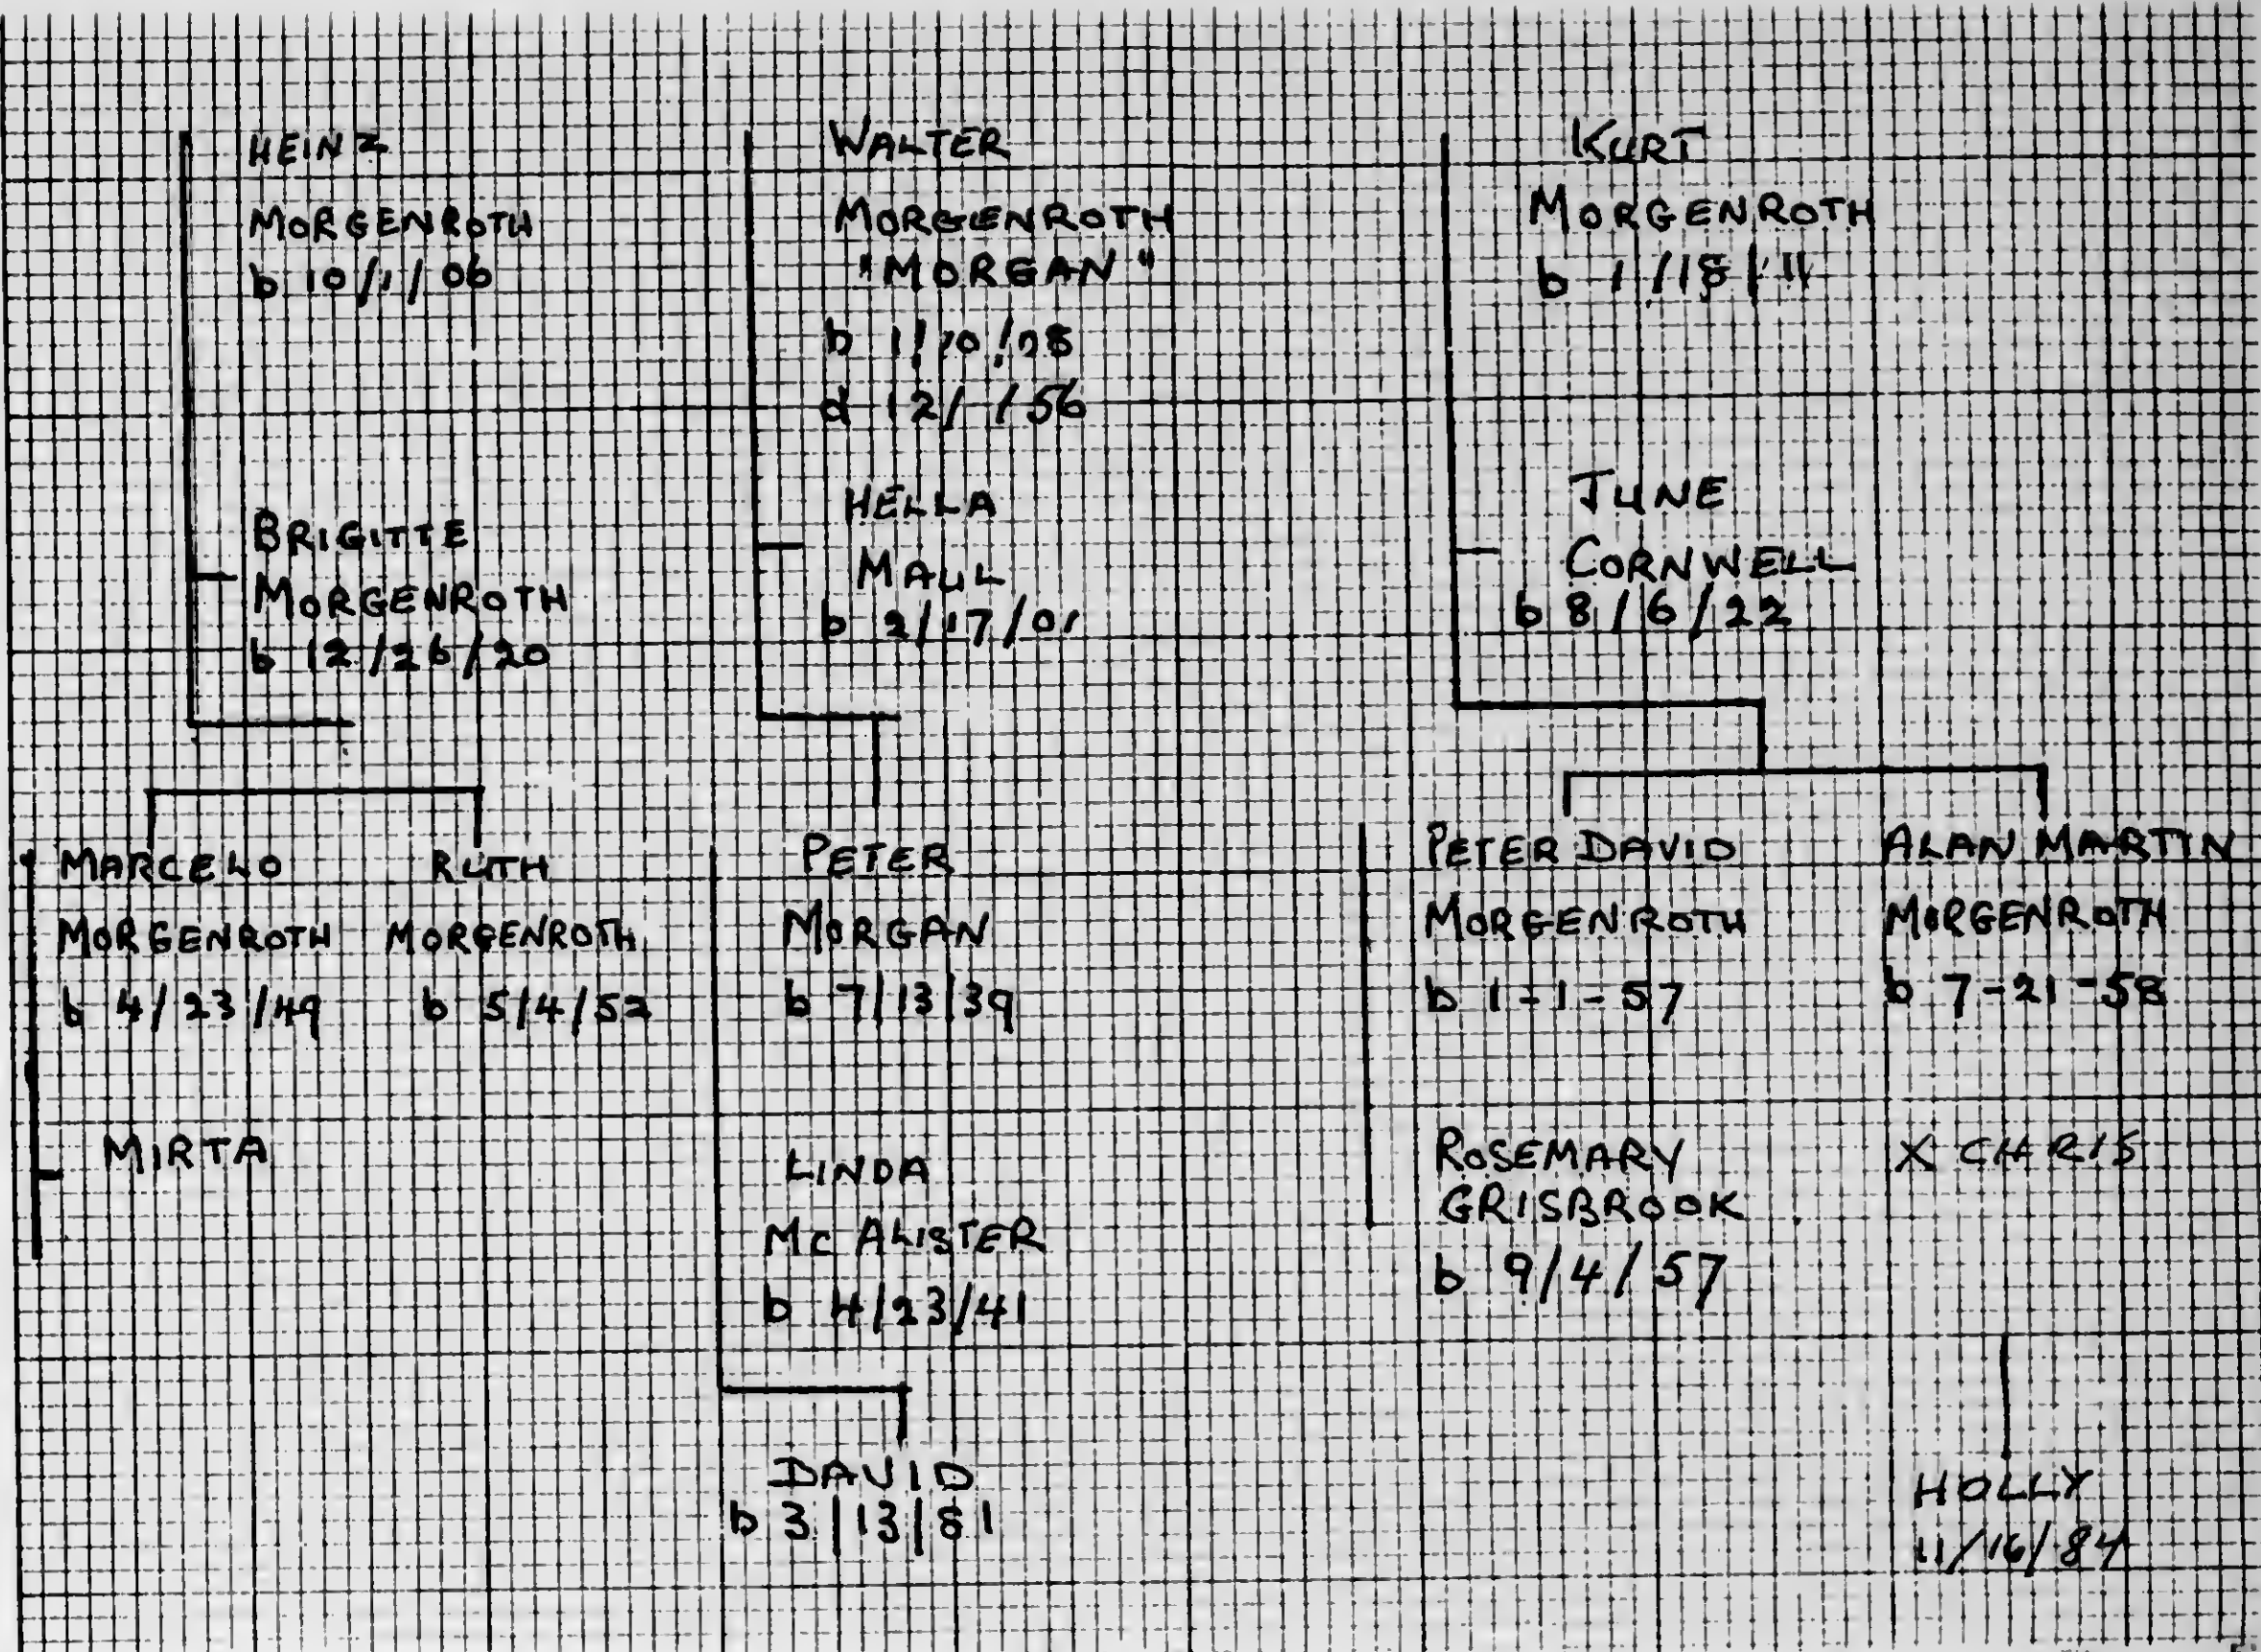 HEINZ
MORGENROTH
b 10/1/06
BRIGITTE
MORGENROTH
b 12/26/20
WALTER
MORGENROTH
"MORGAN"
b 1/10/08
d 12/ /56
HELLA
MAUL
b 2/17/01
KURT
MORGENROTH
b 1/18/11
JUNE
CORNWELL
b 8/6/22
MARCELO
MORGENROTH
b 4/23/49
MIRTA
RUTH
MORGENROTH
b 5/4/52
PETER
MORGAN
b 7/13/39
LINDA
MC ALISTER
b 4/23/41
DAVID
b 3/13/81
PETER DAVID
MORGENROTH
b 1-1-57
ROSEMARY
GRISBROOK
b 9/4/57
ALAN MARTIN
MORGENROTH
b 7-21-58
X CHRIS
HOLLY
11/16/84